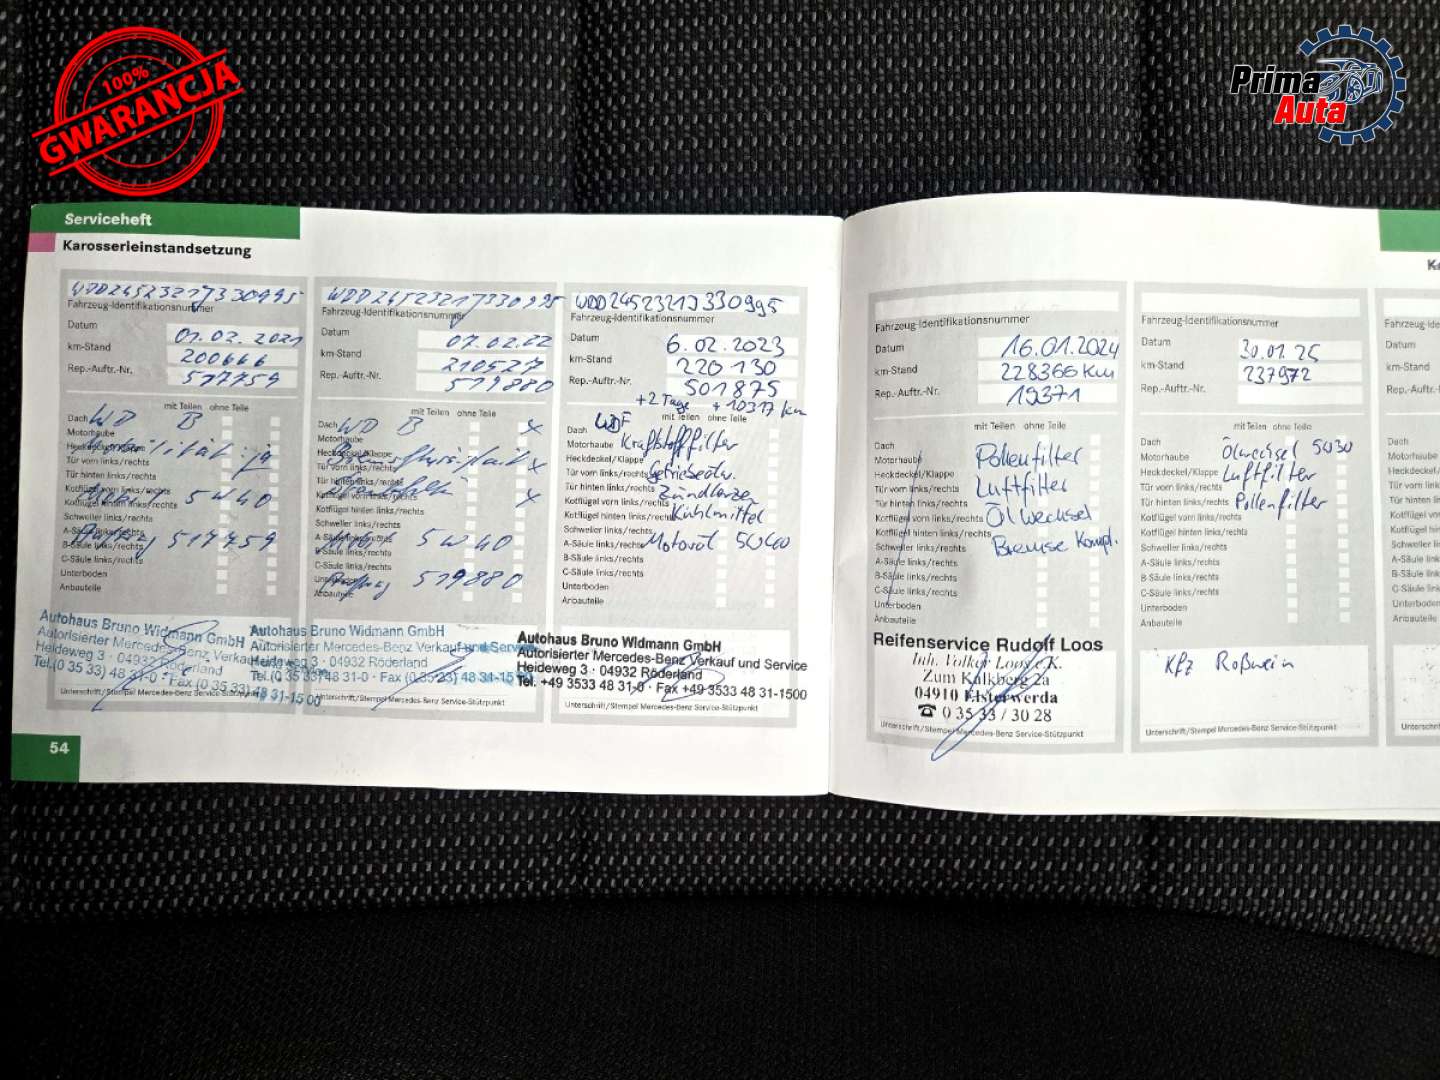 100%
GWARANCJA
Prima
Auta
Serviceheft
Karosserieinstandsetzung
WDD2452321J330995
Fahrzeug-Identifikationsnummer
Datum
01.02.2021
km-Stand
200666
Rep.-Auftr.-Nr.
517759
mit Teilen ohne Teile
Dach WD B
Motorhaube
Heckdeckel/Klappe
Mobilität: ja
Tür vorn links/rechts
Tür hinten links/rechts
Kotflügel vorn links/rechts
5W40
Kotflügel hinten links/rechts
Schweller links/rechts
A-Säule links/rechts
517759
B-Säule links/rechts
C-Säule links/rechts
Unterboden
Anbauteile
Autohaus Bruno Widmann GmbH
Autorisierter Mercedes-Benz Verkauf
Heideweg 3 · 04932 Röderland
Tel.(0 35 33) 48 31-0 · Fax (0 35 33) 48 31-15 00
Unterschrift/Stempel Mercedes-Benz Service-Stützpunkt
54
WDD2452321J330995
Fahrzeug-Identifikationsnummer
Datum
07.02.22
km-Stand
210527
Rep.-Auftr.-Nr.
519880
mit Teilen ohne Teile
Dach WD B x
Motorhaube
Heckdeckel/Klappe
Bremsflüssigkeit x
Tür vorn links/rechts
Tür hinten links/rechts
x
Kotflügel vorn links/rechts
Kotflügel hinten links/rechts
Schweller links/rechts
A-Säule links/rechts
5W40
B-Säule links/rechts
C-Säule links/rechts
Unterboden
519880
Anbauteile
Autohaus Bruno Widmann GmbH
Autorisierter Mercedes-Benz Verkauf und Service
Heideweg 3 · 04932 Röderland
Tel.(0 35 33) 48 31-0 · Fax (0 35 23) 48 31-15 00
Unterschrift/Stempel Mercedes-Benz Service-Stützpunkt
WDD2452321J330995
Fahrzeug-Identifikationsnummer
Datum
6.02.2023
km-Stand
220 130
Rep.-Auftr.-Nr.
501875
+2 Tage +10317 km
mit Teilen ohne Teile
Dach
Motorhaube Kraftstofffilter
Heckdeckel/Klappe
Tür vorn links/rechts Getriebeölw.
Tür hinten links/rechts Zündkerzen
Kotflügel vorn links/rechts
Kotflügel hinten links/rechts Kühlmittel
Schweller links/rechts
A-Säule links/rechts Motoröl 5W40
B-Säule links/rechts
C-Säule links/rechts
Unterboden
Anbauteile
Autohaus Bruno Widmann GmbH
Autorisierter Mercedes-Benz Verkauf und Service
Heideweg 3 · 04932 Röderland
Tel. +49 3533 48 31-0 · Fax +49 3533 48 31-1500
Unterschrift/Stempel Mercedes-Benz Service-Stützpunkt
Fahrzeug-Identifikationsnummer
Datum
16.01.2024
km-Stand
228366 Km
Rep.-Auftr.-Nr.
19371
mit Teilen ohne Teile
Dach
Motorhaube Pollenfilter
Heckdeckel/Klappe
Tür vorn links/rechts Luftfilter
Tür hinten links/rechts
Kotflügel vorn links/rechts Ölwechsel
Kotflügel hinten links/rechts
Schweller links/rechts Bremse Kompl.
A-Säule links/rechts
B-Säule links/rechts
C-Säule links/rechts
Unterboden
Anbauteile
Reifenservice Rudolf Loos
Inh. Volker Loos e.K.
Zum Kalkberg 2a
04910 Elsterwerda
☎ 0 35 33 / 30 28
Unterschrift/Stempel Mercedes-Benz Service-Stützpunkt
Fahrzeug-Identifikationsnummer
Datum
30.01.25
km-Stand
237972
Rep.-Auftr.-Nr.
mit Teilen ohne Teile
Dach
Motorhaube Ölwechsel 5W30
Heckdeckel/Klappe Luftfilter
Tür vorn links/rechts
Tür hinten links/rechts Pollenfilter
Kotflügel vorn links/rechts
Kotflügel hinten links/rechts
Schweller links/rechts
A-Säule links/rechts
B-Säule links/rechts
C-Säule links/rechts
Unterboden
Anbauteile
Kfz Roßwein
Unterschrift/Stempel Mercedes-Benz Service-Stützpunkt
Datum
km-Stand
Rep.-Auftr.-Nr.
Dach
Motorhaube
Unterboden
Anbauteile